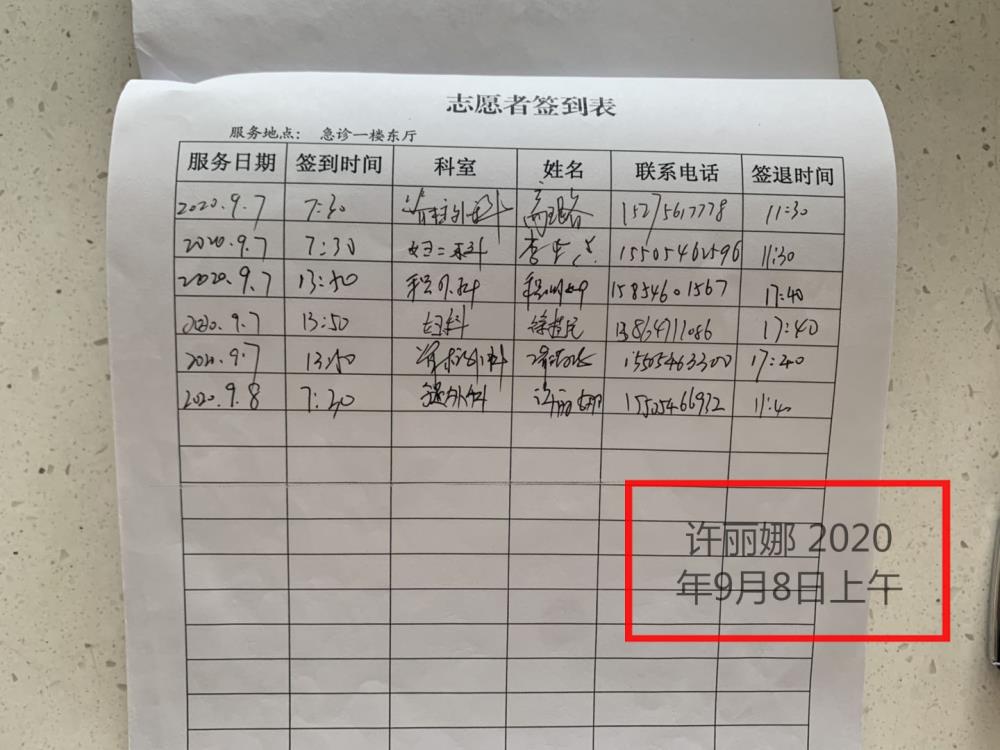 志愿者签到表
服务地点： 急诊一楼东厅
服务日期 签到时间 科室 姓名 联系电话 签退时间
2020.9.7 7:30 脊柱外科 15275617778 11:30
2020.9.7 7:30 妇二科 15505462596 11:30
2020.9.7 13:50 15854601567 17:40
2020.9.7 13:50 妇科 13864711086 17:40
2020.9.7 13:50 脊柱外科 15054633300 17:40
2020.9.8 7:30 许丽娜 15505466932 11:40
许丽娜 2020
年9月8日上午